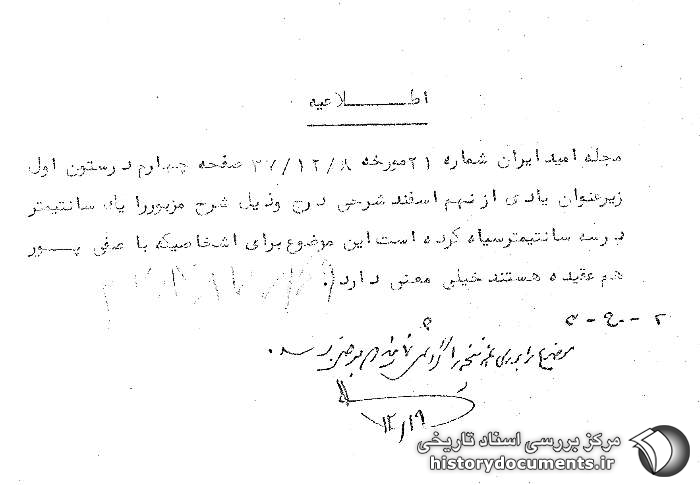 اطلاعیه
مجله امید ایران شماره ۲۱ مورخه ۳۷/۱۲/۸ صفحه چهارم در ستون اول
زیر عنوان یادی از نهم اسفند شرحی درج و ذیل شرح مزبور را یک سانتیمتر
در سه سانتیمتر سیاه کرده است این موضوع برای اشخاصیکه با صفی پور
هم عقیده هستند خیلی معنی دارد.
موضوع را
۱۲/۱۹
مرکز بررسی اسناد تاریخی
historydocuments.ir